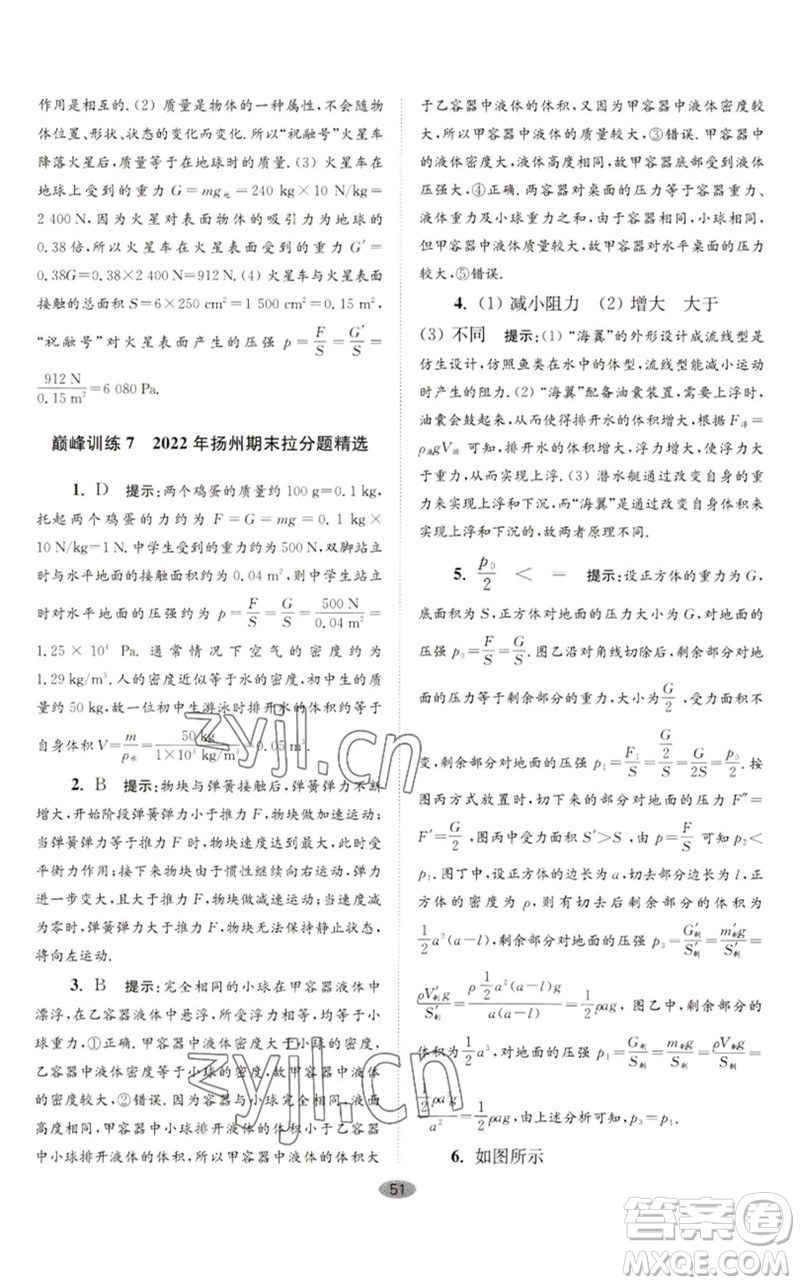 作用是相互的.(2) 质量是物体的一种属性,不会随物
体位置、形状、状态的变化而变化.所以“祝融号”火星车
降落火星后,质量等于在地球时的质量.(3) 火星车在
地球上受到的重力 G=mg地=240 kg×10 N/kg=
2 400 N,因为火星对表面物体的吸引力为地球的
0.38倍,所以火星车在火星表面受到的重力 G′=
0.38G=0.38×2 400 N=912 N.(4) 火星车与火星表面
接触的总面积 S=6×250 cm²=1 500 cm²=0.15 m²,
“祝融号”对火星表面产生的压强 p=F/S=G′/S=
912 N/0.15 m²=6 080 Pa.
巅峰训练7 2022年扬州期末拉分题精选
1. D 提示:两个鸡蛋的质量约 100 g=0.1 kg,
托起两个鸡蛋的力约为 F=G=mg=0.1 kg×
10 N/kg=1 N.中学生受到的重力约为 500 N,双脚站立
时与水平地面的接触面积约为 0.04 m²,则中学生站立
时对水平地面的压强约为 p=F/S=G/S=500 N/0.04 m²=
1.25×10⁴ Pa.通常情况下空气的密度约为
1.29 kg/m³.人的密度近似等于水的密度,中学生的质
量约 50 kg,则初中生游泳时排开水的体积约等于
自身体积 V=m/ρ水=50 kg/(1×10³ kg/m³)=0.05 m³.
2. B 提示:物块与弹簧接触后,弹簧弹力不断
增大,开始阶段弹簧弹力小于推力 F,物块做加速运动;
当弹簧弹力等于推力 F 时,物块速度达到最大,此时受
平衡力作用;接下来物块由于惯性继续向右运动,弹力
进一步变大,且大于推力 F,物块做减速运动;当速度减
为零时,弹簧弹力大于推力 F,物块无法保持静止状态,
将向左运动.
3. B 提示:完全相同的小球在甲容器液体中
漂浮,在乙容器液体中悬浮,所受浮力相等,均等于小
球重力,①正确.甲容器中液体密度大于小球的密度,
乙容器中液体的密度等于小球密度,故甲容器中液体
密度较大,②错误.因为容器与小球完全相同,液体高
度相同,甲容器中小球排开液体的体积小于乙容器中
小球排开液体的体积,所以甲容器中液体的体积大
于乙容器中液体的体积,又因为甲容器中液体密度较
大,所以甲容器中液体的质量较大,③错误.甲容器中
液体密度较大,液体高度相同,故甲容器底部受到液体
压强大,④正确.两容器对桌面的压力等于容器重力、
液体重力与小球重力之和,由于容器相同,小球相同,
但甲容器中液体质量大,故甲容器对水平桌面的压力
大,⑤错误.
4. (1) 减小阻力 (2) 增大 大于
(3) 不同 提示:(1) “海翼”的外形设计成流线型是
仿生设计,仿照鱼类在水中的体型,流线型能减小运动
时产生的阻力.(2) “海翼”配备油囊装置,需要上浮时,
油囊会变大,从而使得排开水的体积增大,根据 F浮=
ρ液gV排 可知,浮力增大,浮力大于重力,从而可以实现
上浮.(3) 潜水艇通过改变自身的重力来实
现上浮和下沉,而“海翼”通过改变自身体积来
实现上浮和下沉的,故两者原理不同.
5. p₀/2 < = 提示:设正方体的重力为G,
底面积为 S,正方体对地面的压力大小为 G,对地面的
压强 p₀=F/S=G/S.图乙沿对角线切除后,剩余部分对地面
的压力等于剩余部分的重力,为 F′=G/2,受力面积不
变,剩余部分对地面的压强 p₁=F₁/S=(G/2)/S=G/2S=p₀/2.按
图丙方式放置时,切下来的部分对地面的压力 F″=
F′=G/2,图丙中受力面积 S′>S,由 p=F/S 可知 p₂<
p₁.图丁中,设正方体的边长为 a,切去部分的边长为 l,
正方体的密度为 ρ,则有切去后剩余部分的体积为
1/2a²(a-l),剩余部分对地面的压强 p₃=G′剩/S′剩=m′剩g/S′剩=
ρV′剩g/S′剩=ρ1/2a²(a-l)g/a(a-l)=1/2ρag,图乙中,剩余部分的
体积为 1/2a³,对地面的压强 p₁=G剩/S剩=m剩g/S剩=ρV剩g/S剩=
1/2ρa³g/a²=1/2ρag,由上述分析可知,p₃=p₁.
6. 如图所示
51
zyjl.cn
zyjl.cn
答案圈
MXQE.COM